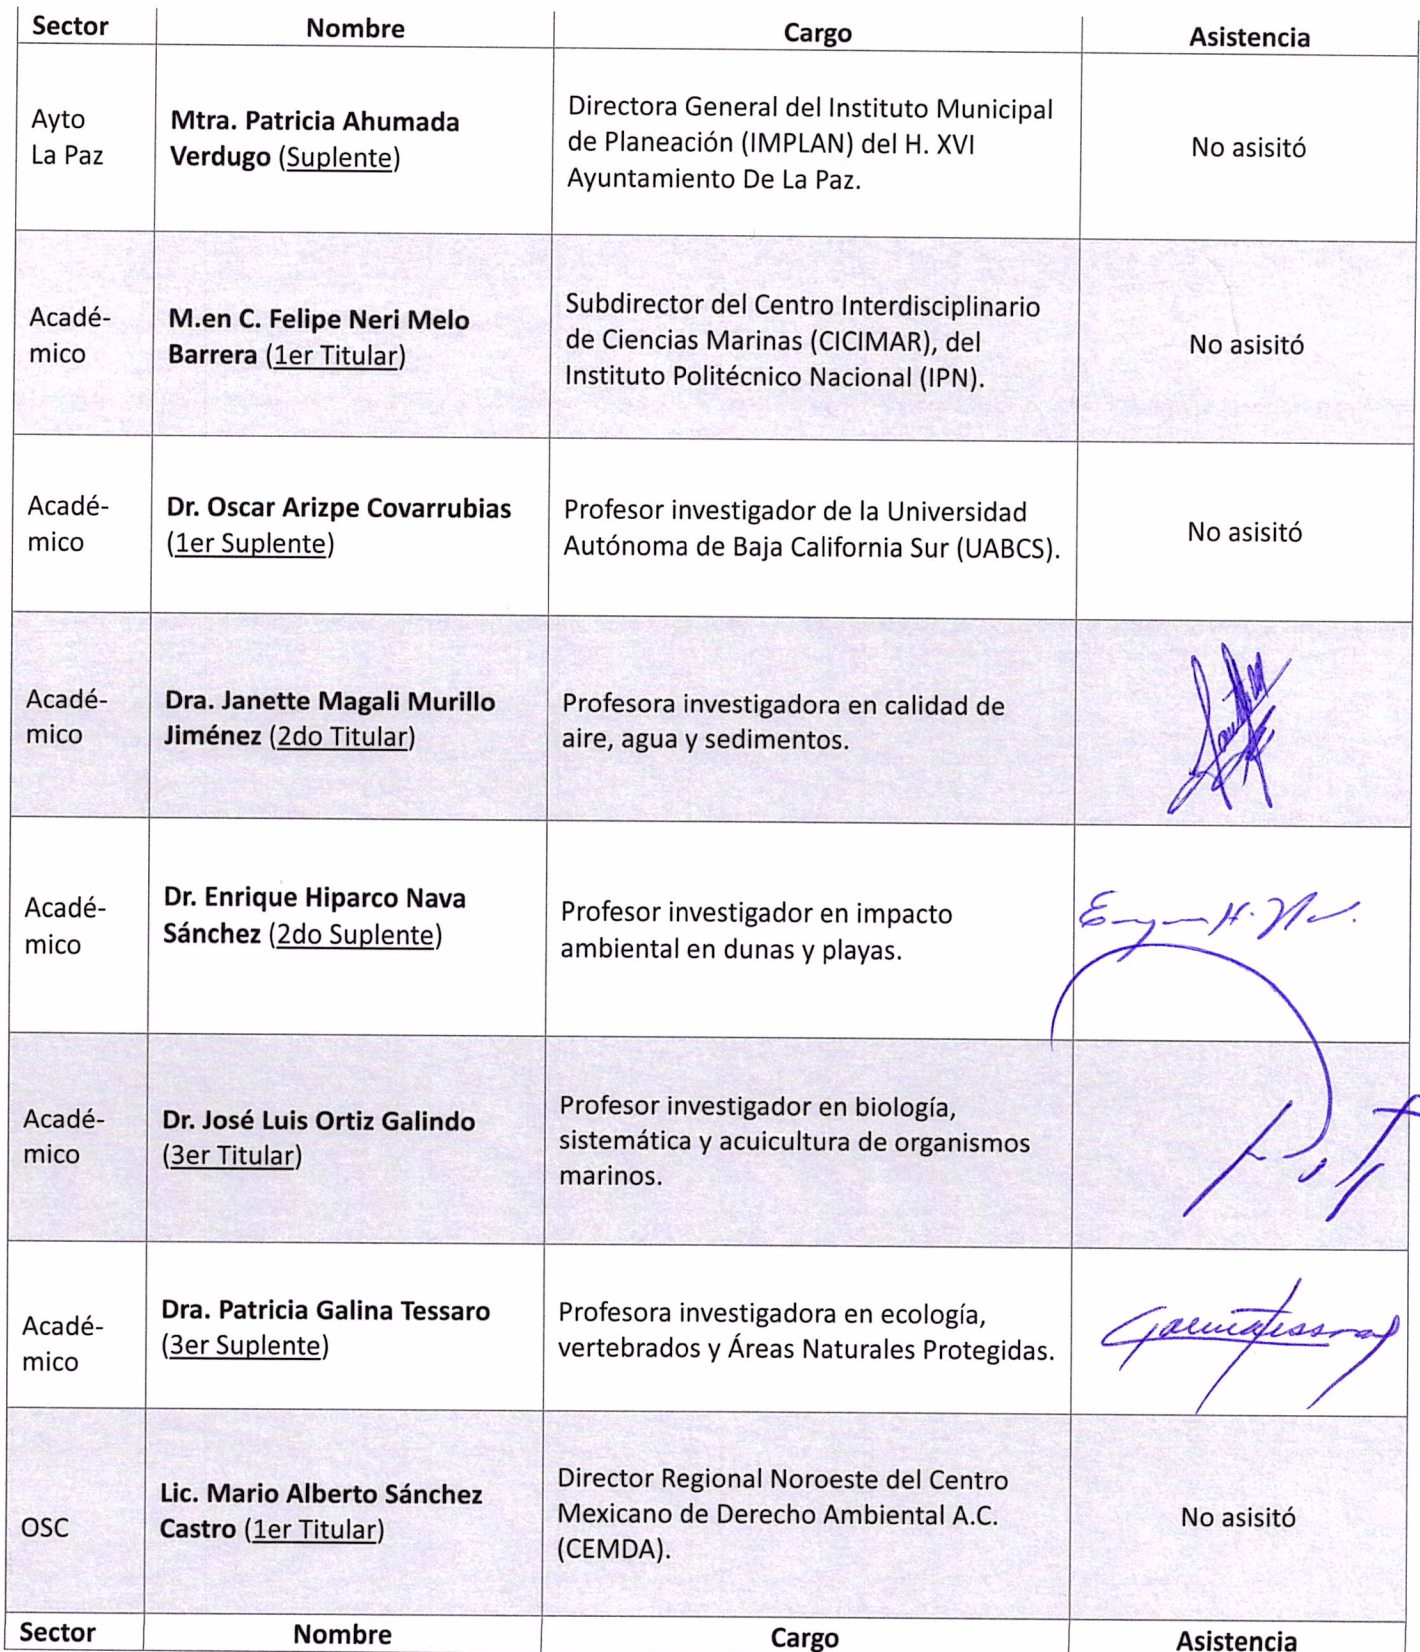 Sector Nombre Cargo Asistencia
Ayto
La Paz
Mtra. Patricia Ahumada
Verdugo (Suplente)
Directora General del Instituto Municipal
de Planeación (IMPLAN) del H. XVI
Ayuntamiento De La Paz.
No asisitó
Acadé-
mico
M.en C. Felipe Neri Melo
Barrera (1er Titular)
Subdirector del Centro Interdisciplinario
de Ciencias Marinas (CICIMAR), del
Instituto Politécnico Nacional (IPN).
No asisitó
Acadé-
mico
Dr. Oscar Arizpe Covarrubias
(1er Suplente)
Profesor investigador de la Universidad
Autónoma de Baja California Sur (UABCS).
No asisitó
Acadé-
mico
Dra. Janette Magali Murillo
Jiménez (2do Titular)
Profesora investigadora en calidad de
aire, agua y sedimentos.
Acadé-
mico
Dr. Enrique Hiparco Nava
Sánchez (2do Suplente)
Profesor investigador en impacto
ambiental en dunas y playas.
Acadé-
mico
Dr. José Luis Ortiz Galindo
(3er Titular)
Profesor investigador en biología,
sistemática y acuicultura de organismos
marinos.
Acadé-
mico
Dra. Patricia Galina Tessaro
(3er Suplente)
Profesora investigadora en ecología,
vertebrados y Áreas Naturales Protegidas.
OSC
Lic. Mario Alberto Sánchez
Castro (1er Titular)
Director Regional Noroeste del Centro
Mexicano de Derecho Ambiental A.C.
(CEMDA).
No asisitó
Sector Nombre Cargo Asistencia